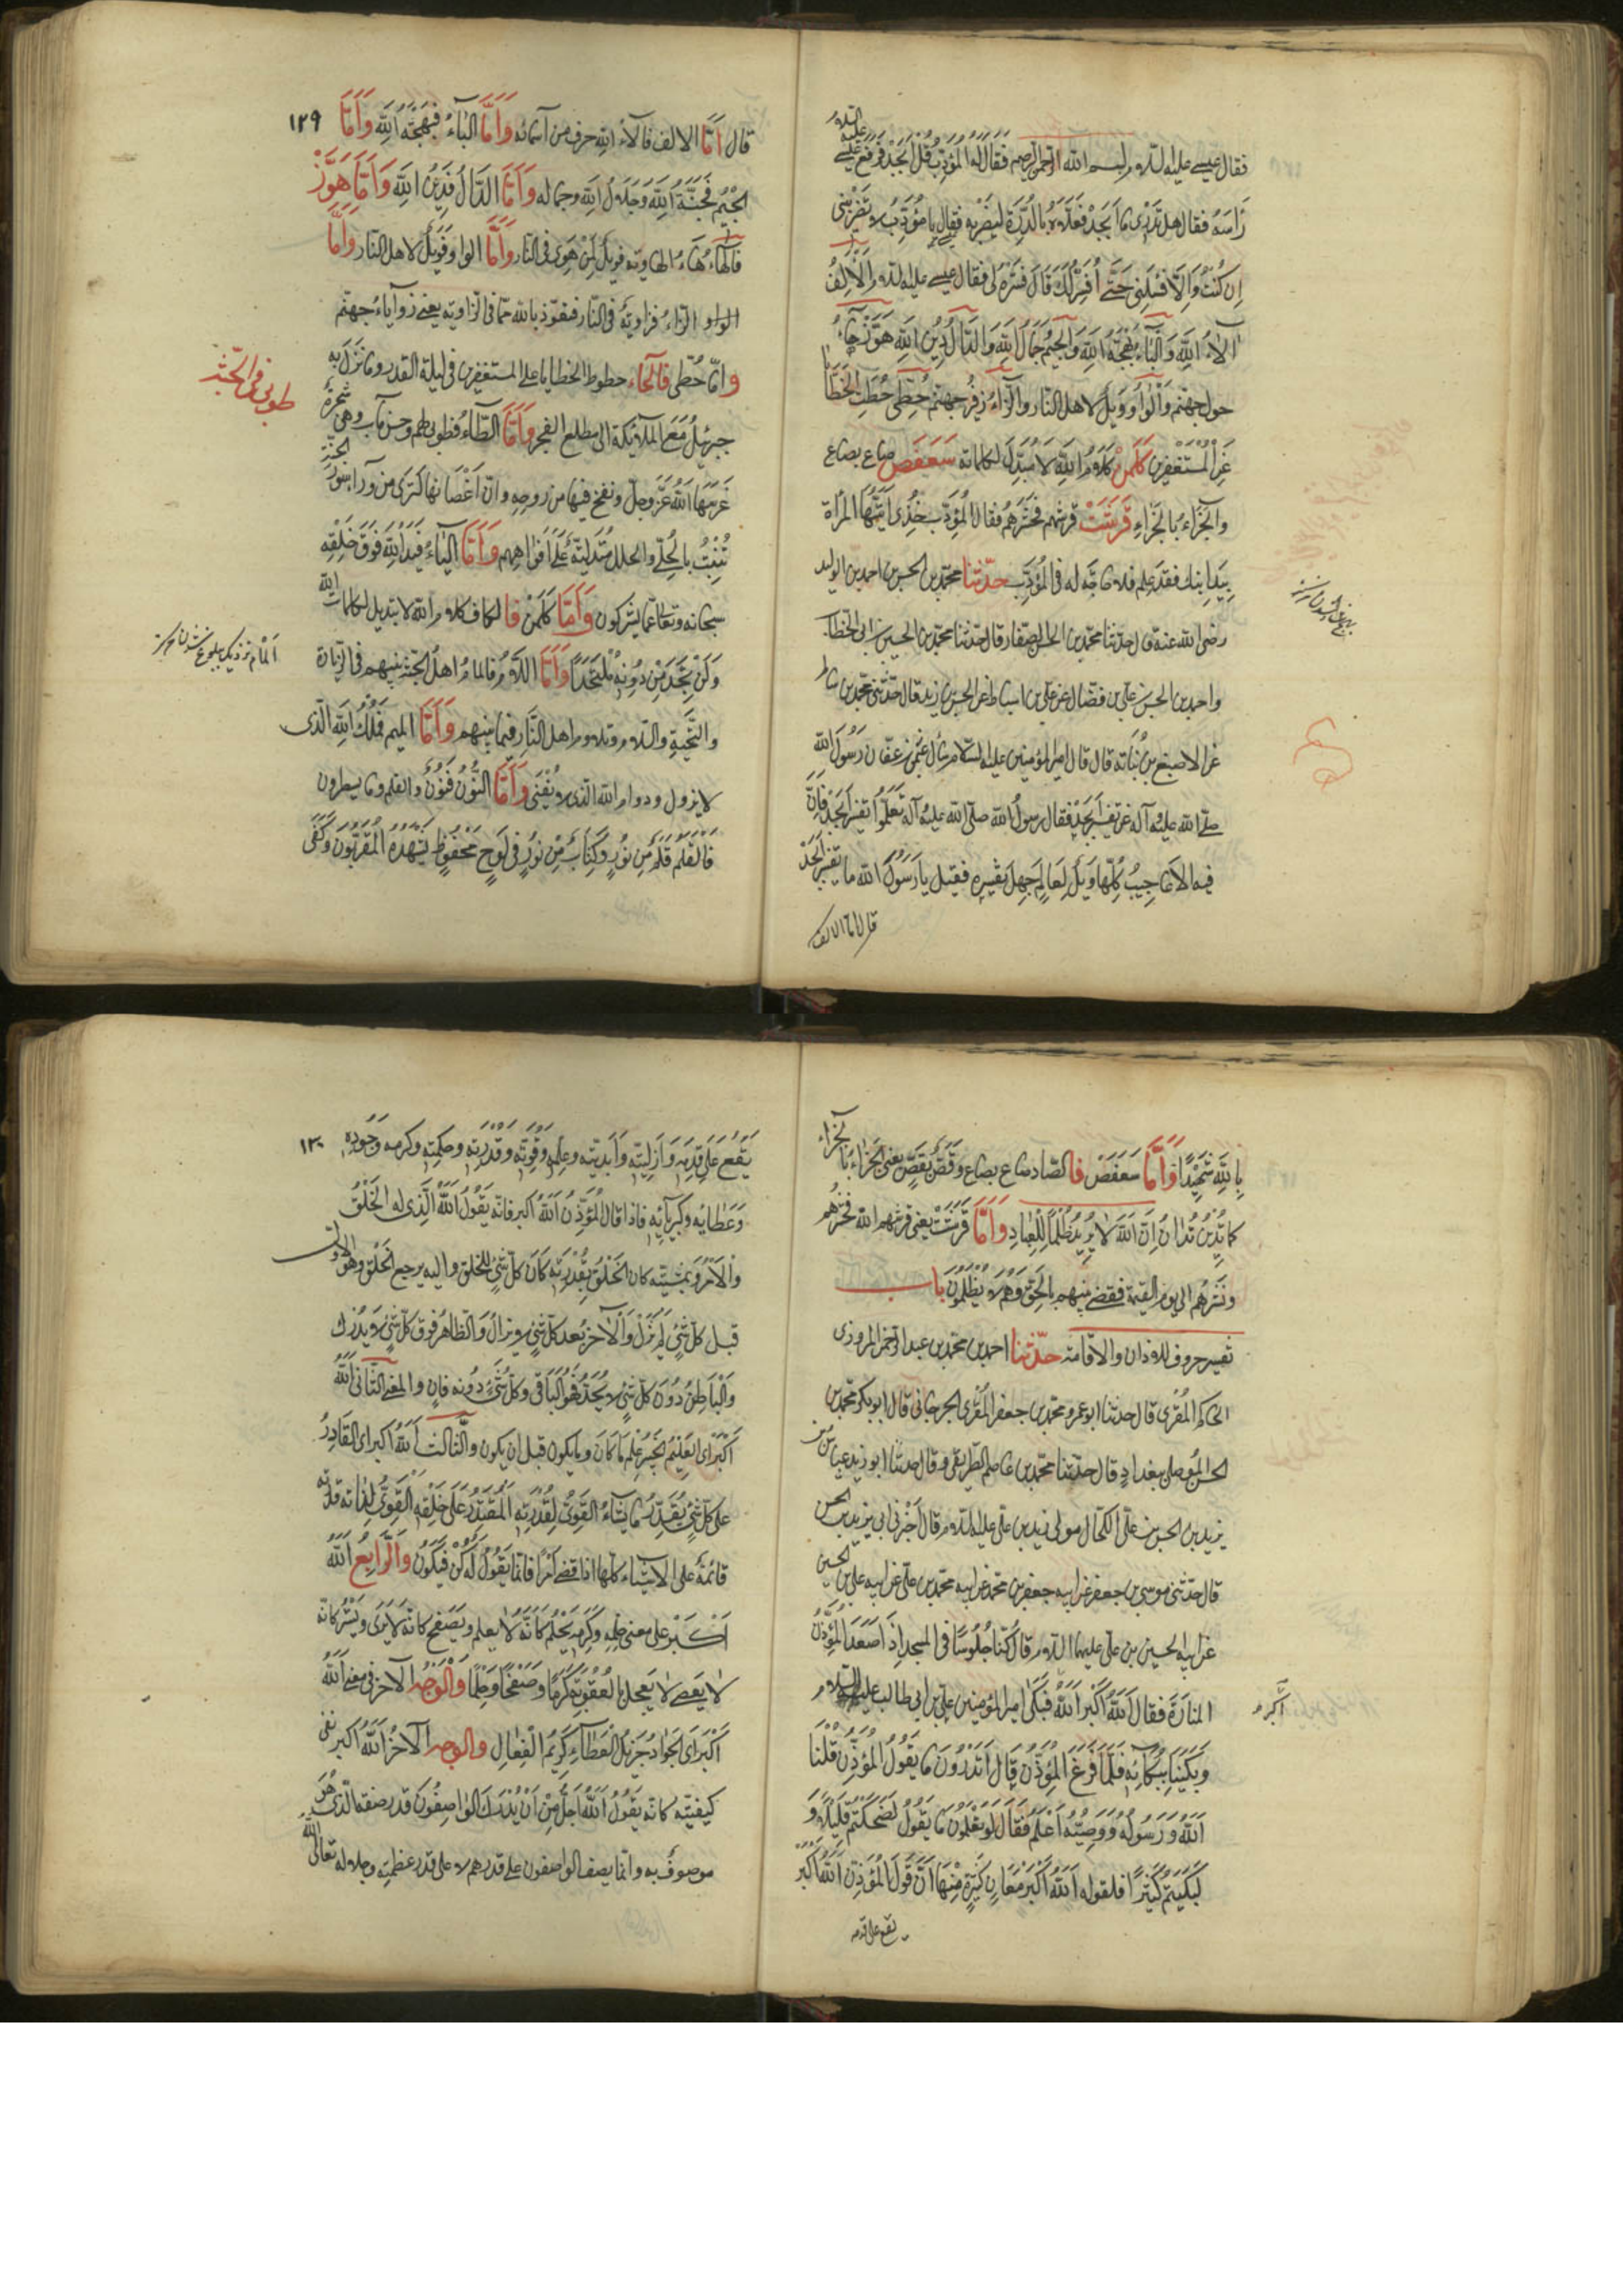 فقال عيسى عليه السلام بسم الله الرحمن الرحيم فقال له المؤدب قل ابجد فرفع عيسى عليه السلام
رأسه فقال هل تدرى ما ابجد فعلاه بالدرة ليضربه فقال يا مؤدب لا تضربنى
ان كنت والا فسلنى حتى افسر لك قال فسره لى فقال عيسى عليه السلام الالف
آلاء الله والباء بهجة الله والجيم جمال الله والدال دين الله هوز هاء
هول جهنم والواو ويل لاهل النار والزاء زفير جهنم حطى حطت الخطايا
عن المستغفرين كلمن كلام الله لا مبدل لكلماته سعفص صاع بصاع
والجزاء بالجزاء قرشت قرشهم فحشرهم فقال المؤدب خذى ايتها المرأة
بيد ابنك فقد علم فلا حاجة له فى المؤدب حدثنا محمد بن الحسن بن احمد بن الوليد
رضى الله عنه قال حدثنا محمد بن الحسن الصفار قال حدثنا محمد بن الحسين بن ابى الخطاب
واحمد بن الحسن بن على بن فضال عن على بن اسباط عن الحسن بن زيد قال حدثنى محمد بن سالم
عن الاصبغ بن نباتة قال قال امير المؤمنين عليه السلام سأل عثمن بن عفان رسول الله
صلى الله عليه وآله عن تفسير ابجد فقال رسول الله صلى الله عليه وآله تعلموا تفسير ابجد فان
فيه الاعاجيب كلها ويل لعالم جهل تفسيره فقيل يا رسول الله ما تفسير ابجد
قال اما الالف
١٢٩
قال اما الالف فآلاء الله حرف من اسمائه واما الباء فبهجة الله واما
الجيم فجنة الله وجلال الله وجماله واما الدال فدين الله واما هوز
فالهاء هاء الهاوية فويل لمن هوى فى النار واما الواو فويل لاهل النار واما
الواو الزاء فزاوية فى النار فنعوذ بالله مما فى الزاوية يعنى زوايا جهنم
واما حطى فالحاء حطوط الخطايا على المستغفرين فى ليلة القدر وما نزل به
جبرئيل مع الملائكة الى مطلع الفجر واما الطاء فطوبى لهم وحسن مآب وهى شجرة
غرسها الله عز وجل ونفخ فيها من روحه وان اغصانها لترى من وراء سور الجنة
تنبت بالحلى والحلل متدلية على افواههم واما الياء فيد الله فوق خلقه
سبحانه وتعالى عما يشركون واما كلمن فالكاف كلام الله لا تبديل لكلمات الله
ولن تجد من دونه ملتحدا واما اللام فالمام اهل الجنة بينهم فى الزيارة
والتحية والسلام وتلاوم اهل النار فيما بينهم واما الميم فملك الله الذى
لا يزول ودوام الله الذى لا يفنى واما النون فنون والقلم وما يسطرون
فالقلم قلم من نور وكتاب من نور فى لوح محفوظ يشهده المقربون وكفى
طوبى فى الجنة
بالله شهيدا واما سعفص فالصاد صاع بصاع وفص بفص يعنى الجزاء بالجزاء
كما تدين تدان ان الله لا يريد ظلما للعباد واما قرشت يعنى قرشهم الله فحشرهم
ونشرهم الى يوم القيمة فقضى بينهم بالحق وهم لا يظلمون باب
تفسير حروف الاذان والاقامة حدثنا احمد بن محمد بن عبد الرحمن المروزى
الحاكم المقرى قال حدثنا ابو عمرو محمد بن جعفر المقرى الجرجانى قال ابو بكر محمد بن
الحسن الموصلى ببغداد قال حدثنا محمد بن عاصم الطريفى قال حدثنا ابو زيد عياش بن
يزيد بن الحسن بن على الكحال مولى زيد بن على عليه السلام قال اخبرنى ابى يزيد بن الحسن
قال حدثنى موسى بن جعفر عن ابيه جعفر بن محمد عن ابيه محمد بن على عن ابيه على بن الحسين
عن ابيه الحسين بن على عليهما السلام قال كنا جلوسا فى المسجد اذ اصعد المؤذن
المنارة فقال الله اكبر الله فبكى امير المؤمنين على بن ابى طالب عليه السلام
وبكينا ببكائه فلما فرغ المؤذن قال اتدرون ما يقول المؤذن قلنا
الله ورسوله ووصيه اعلم فقال لو تعلمون ما يقول لضحكتم قليلا و
لبكيتم كثيرا فلقوله الله اكبر معان كثيرة منها ان قول المؤذن الله اكبر
يقع على قدمه
اكبر
١٣٠
يقع على قدمه وازليته وابديته وعلمه وقوته وقدرته وحكمته وكرمه وجوده
وعطائه وكبريائه فاذا قال المؤذن الله اكبر فانه يقول الله الذى له الخلق
والامر وبمشيته كان الخلق بقدرته كان كل شئ للخلق واليه يرجع الخلق وهو الاول
قبل كل شئ لم يزل والآخر بعد كل شئ لا يزال والظاهر فوق كل شئ لا يدرك
والباطن دون كل شئ لا يحد فهو الباقى وكل شئ دونه فان والمعنى الثانى الله
اكبر اى العليم الخبير علم ما كان وما يكون قبل ان يكون والثالث الله اكبر اى القادر
على كل شئ يقدر ما يشاء القوى لقدرته المقتدر على خلقه القوى لذاته قدرته
قائمة على الاشياء كلها اذا قضى امرا فانما يقول له كن فيكون والرابع الله
اكبر على معنى حلمه وكرمه يحلم كانه لا يعلم ويصفح كانه لا يرى ويستر كانه
لا يعصى لا يعجل بالعقوبة كرما وصفحا وحلما والوجه الآخر فى معنى الله
اكبر اى الجواد جزيل العطاء كريم الفعال والوجه الآخر الله اكبر نفى
كيفيته كانه يقول الله اجل من ان يدرك الواصفون قدر صفته الذى هو
موصوف به وانما يصف الواصفون على قدرهم لا على قدر عظمته وجلاله تعالى الله